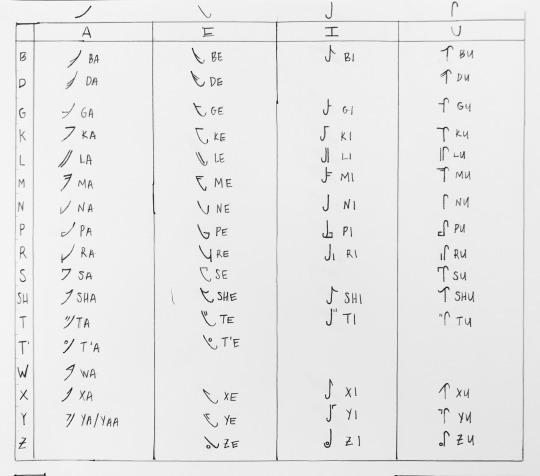 A E I U
B BA BE BI BU
D DA DE DU
G GA GE GI GU
K KA KE KI KU
L LA LE LI LU
M MA ME MI MU
N NA NE NI NU
P PA PE PI PU
R RA RE RI RU
S SA SE SU
SH SHA SHE SHI SHU
T TA TE TI TU
T' T'A T'E
W WA
X XA XE XI XU
Y YA/YAA YE YI YU
Z ZE ZI ZU